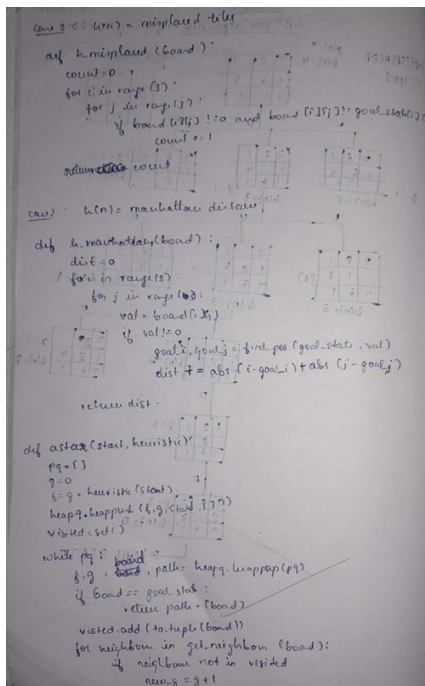 Case : h(n) = misplaced tiles
def h_misplaced (board) :
count = 0
for i in range (3) :
for j in range (3) :
if board [i][j] != 0 and board [i][j] != goal_state[i]
count += 1
return count
Case : h(n) = manhattan distance
def h_manhattan (board) :
dist = 0
for i in range (3)
for j in range (3) :
val = board [i][j]
if val != 0
goal_i, goal_j = find_pos (goal_state, val)
dist += abs (i - goal_i) + abs (j - goal_j)
return dist.
def astar (start, heuristic)
pq = [ ]
g = 0
f = g + heuristic (start)
heapq.heappush (f, g, start, [ ])
visited = set ( )
while pq : board
f, g, , path = heapq.heappop (pq)
if board == goal_state :
return path + (board)
visited.add (to_tuple (board))
for neighbour in get_neighbours (board) :
if neighbour not in visited
new_g = g + 1